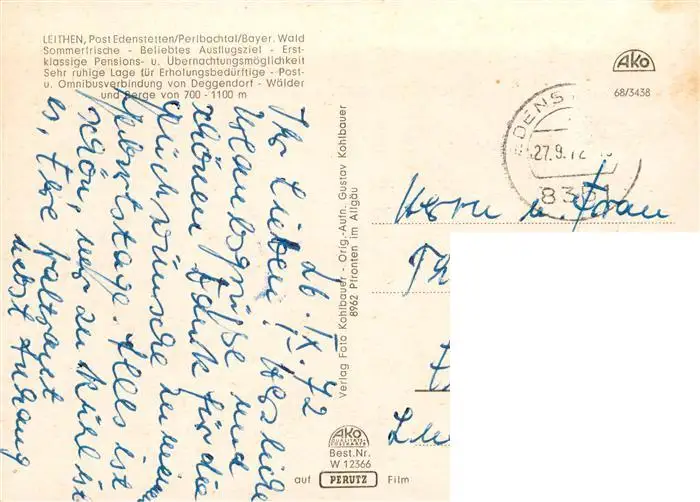 LEITHEN, Post Edenstetten/Perlbachtal/Bayer. Wald
Sommerfrische - Beliebtes Ausflugsziel - Erst-
klassige Pensions- u. Übernachtungsmöglichkeit
Sehr ruhige Lage für Erholungsbedürftige - Post-
u. Omnibusverbindung von Deggendorf - Wälder
und Berge von 700 - 1100 m
26. IX. 72
Ihr Lieben! Herzliche
Urlaubsgrüße und
schönen Dank für die
Glückwünsche zu meinem
Geburtstage. Alles ist
schön, nur zu kühl ist
es, Eure Waltraut
nebst Anhang
Verlag Foto Kohlbauer - Orig.-Aufn. Gustav Kohlbauer
8962 Pfronten im Allgäu
AKO
68/3438
EDENS
27.9.72
8351
Herrn u. Frau
AKO
QUALITÄTS-
POSTKARTE
Best.Nr.
W 12366
auf PERUTZ Film